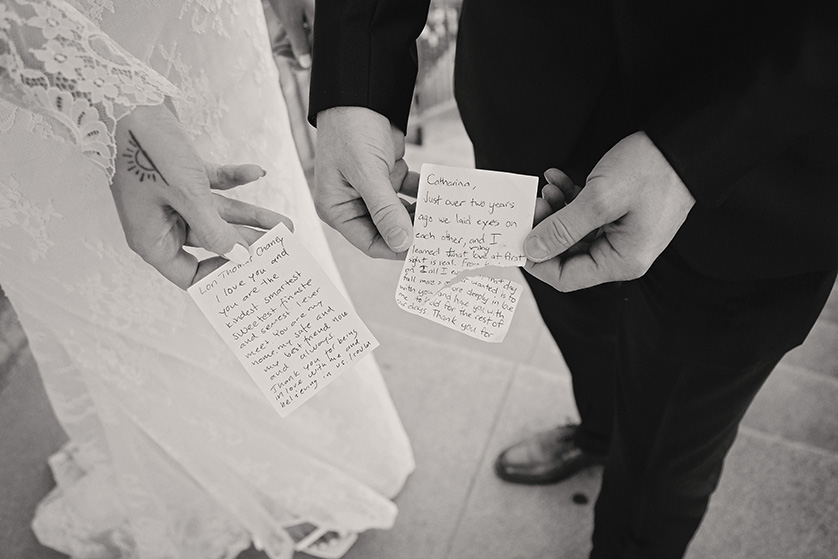 I love you and
you are the
kindest smartest
sweetest funniest
and sexiest I ever
meet you are my
home, my safe and
my best friend now
and always
Thank you for being
in love with me and
believing in us I could
Catharina,
Just over two years
ago we laid eyes on
each other, and I
learned that love at first
sight is real. From
on I all I
fall more deeply in love
with you, and have you with
me to hold for the rest of
our days. Thank you for